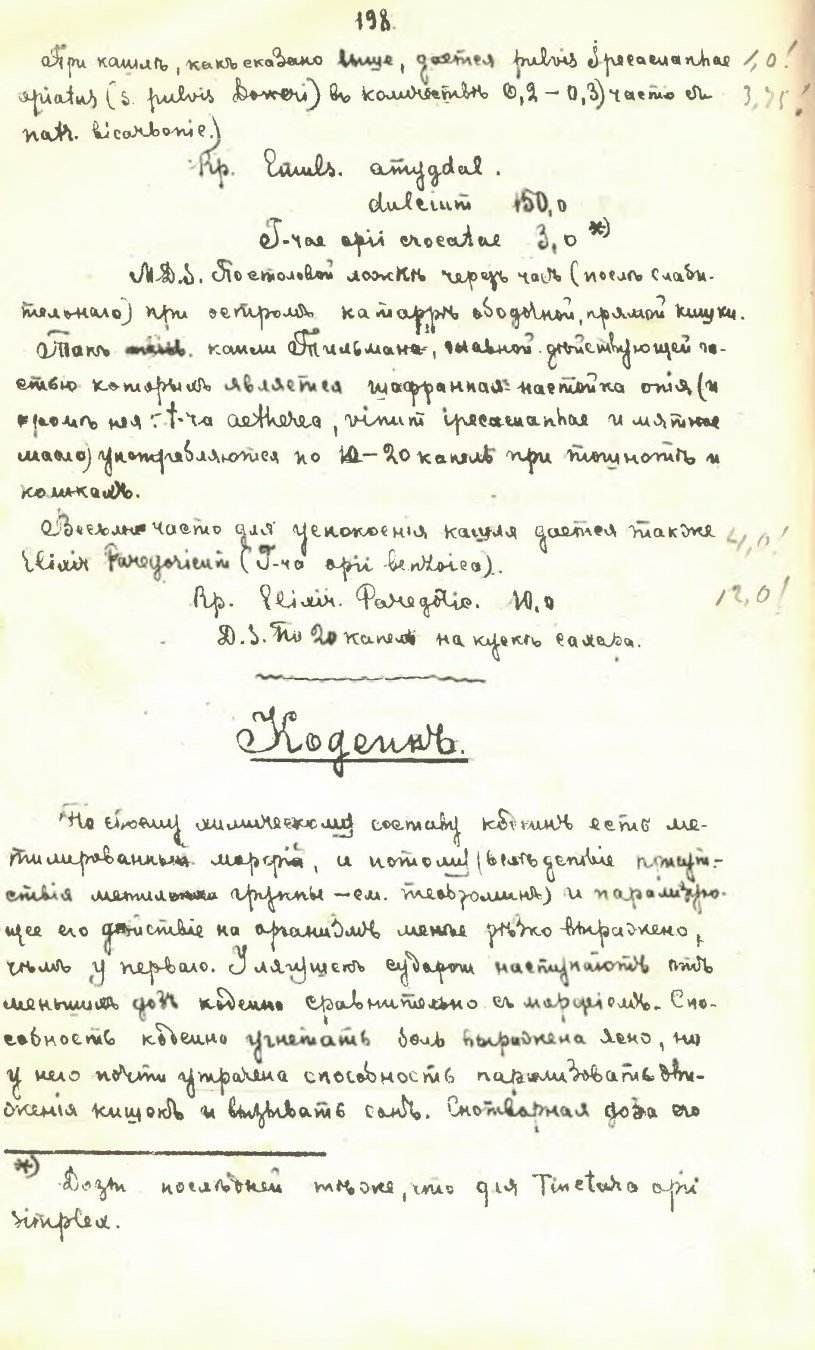 198
При кашлѣ, какъ сказано выше, дается pulvis Ipecacuanhae 1,0!
opiatus (s. pulvis Doweri) въ количествѣ 0,2 – 0,3) часто съ 3,75!
natr. bicarbonic.)
Rp. Emuls. amygdal.
dulcium 150,0
T-rae opii crocatae 3,0 *)
M.D.S. По столовой ложкѣ черезъ часъ (послѣ слаби-
тельнаго) при остромъ катаррѣ ободочной, прямой кишки.
Такъ капли Тильмана, главной дѣйствующей ча-
стью которымъ является шафранная настойка опія (и
кромѣ нея: t-ra aetherea, vinum ipecacuanhae и мятное
масло) употребляются по 10 – 20 капель при тошнотѣ и
коликахъ.
Весьма часто для успокоенія кашля дается также 4,0!
Elixir Paregoricum (T-ra opii benzoica).
Rp. Elixir. Paregoric. 10,0 12,0!
D.S. По 20 капель на кускѣ сахара.
Кодеинъ.
По своему химическому составу кодеинъ есть ме-
тилированный морфій, и потому (вслѣдствіе присут-
ствія метильной группы – см. теобромина) и парализую-
щее его дѣйствіе на организмъ менѣе рѣзко выражено,
чѣмъ у перваго. У лягушекъ судороги наступаютъ отъ
меньшихъ дозъ кодеина сравнительно съ морфіемъ. Спо-
собность кодеина угнетать боль выражена ясно, но
у него почти утрачена способность парализовать дви-
женія кишокъ и вызывать сонъ. Снотворная доза его
*) Дозы послѣдней тѣже, что для Tinctura opii
simplex.